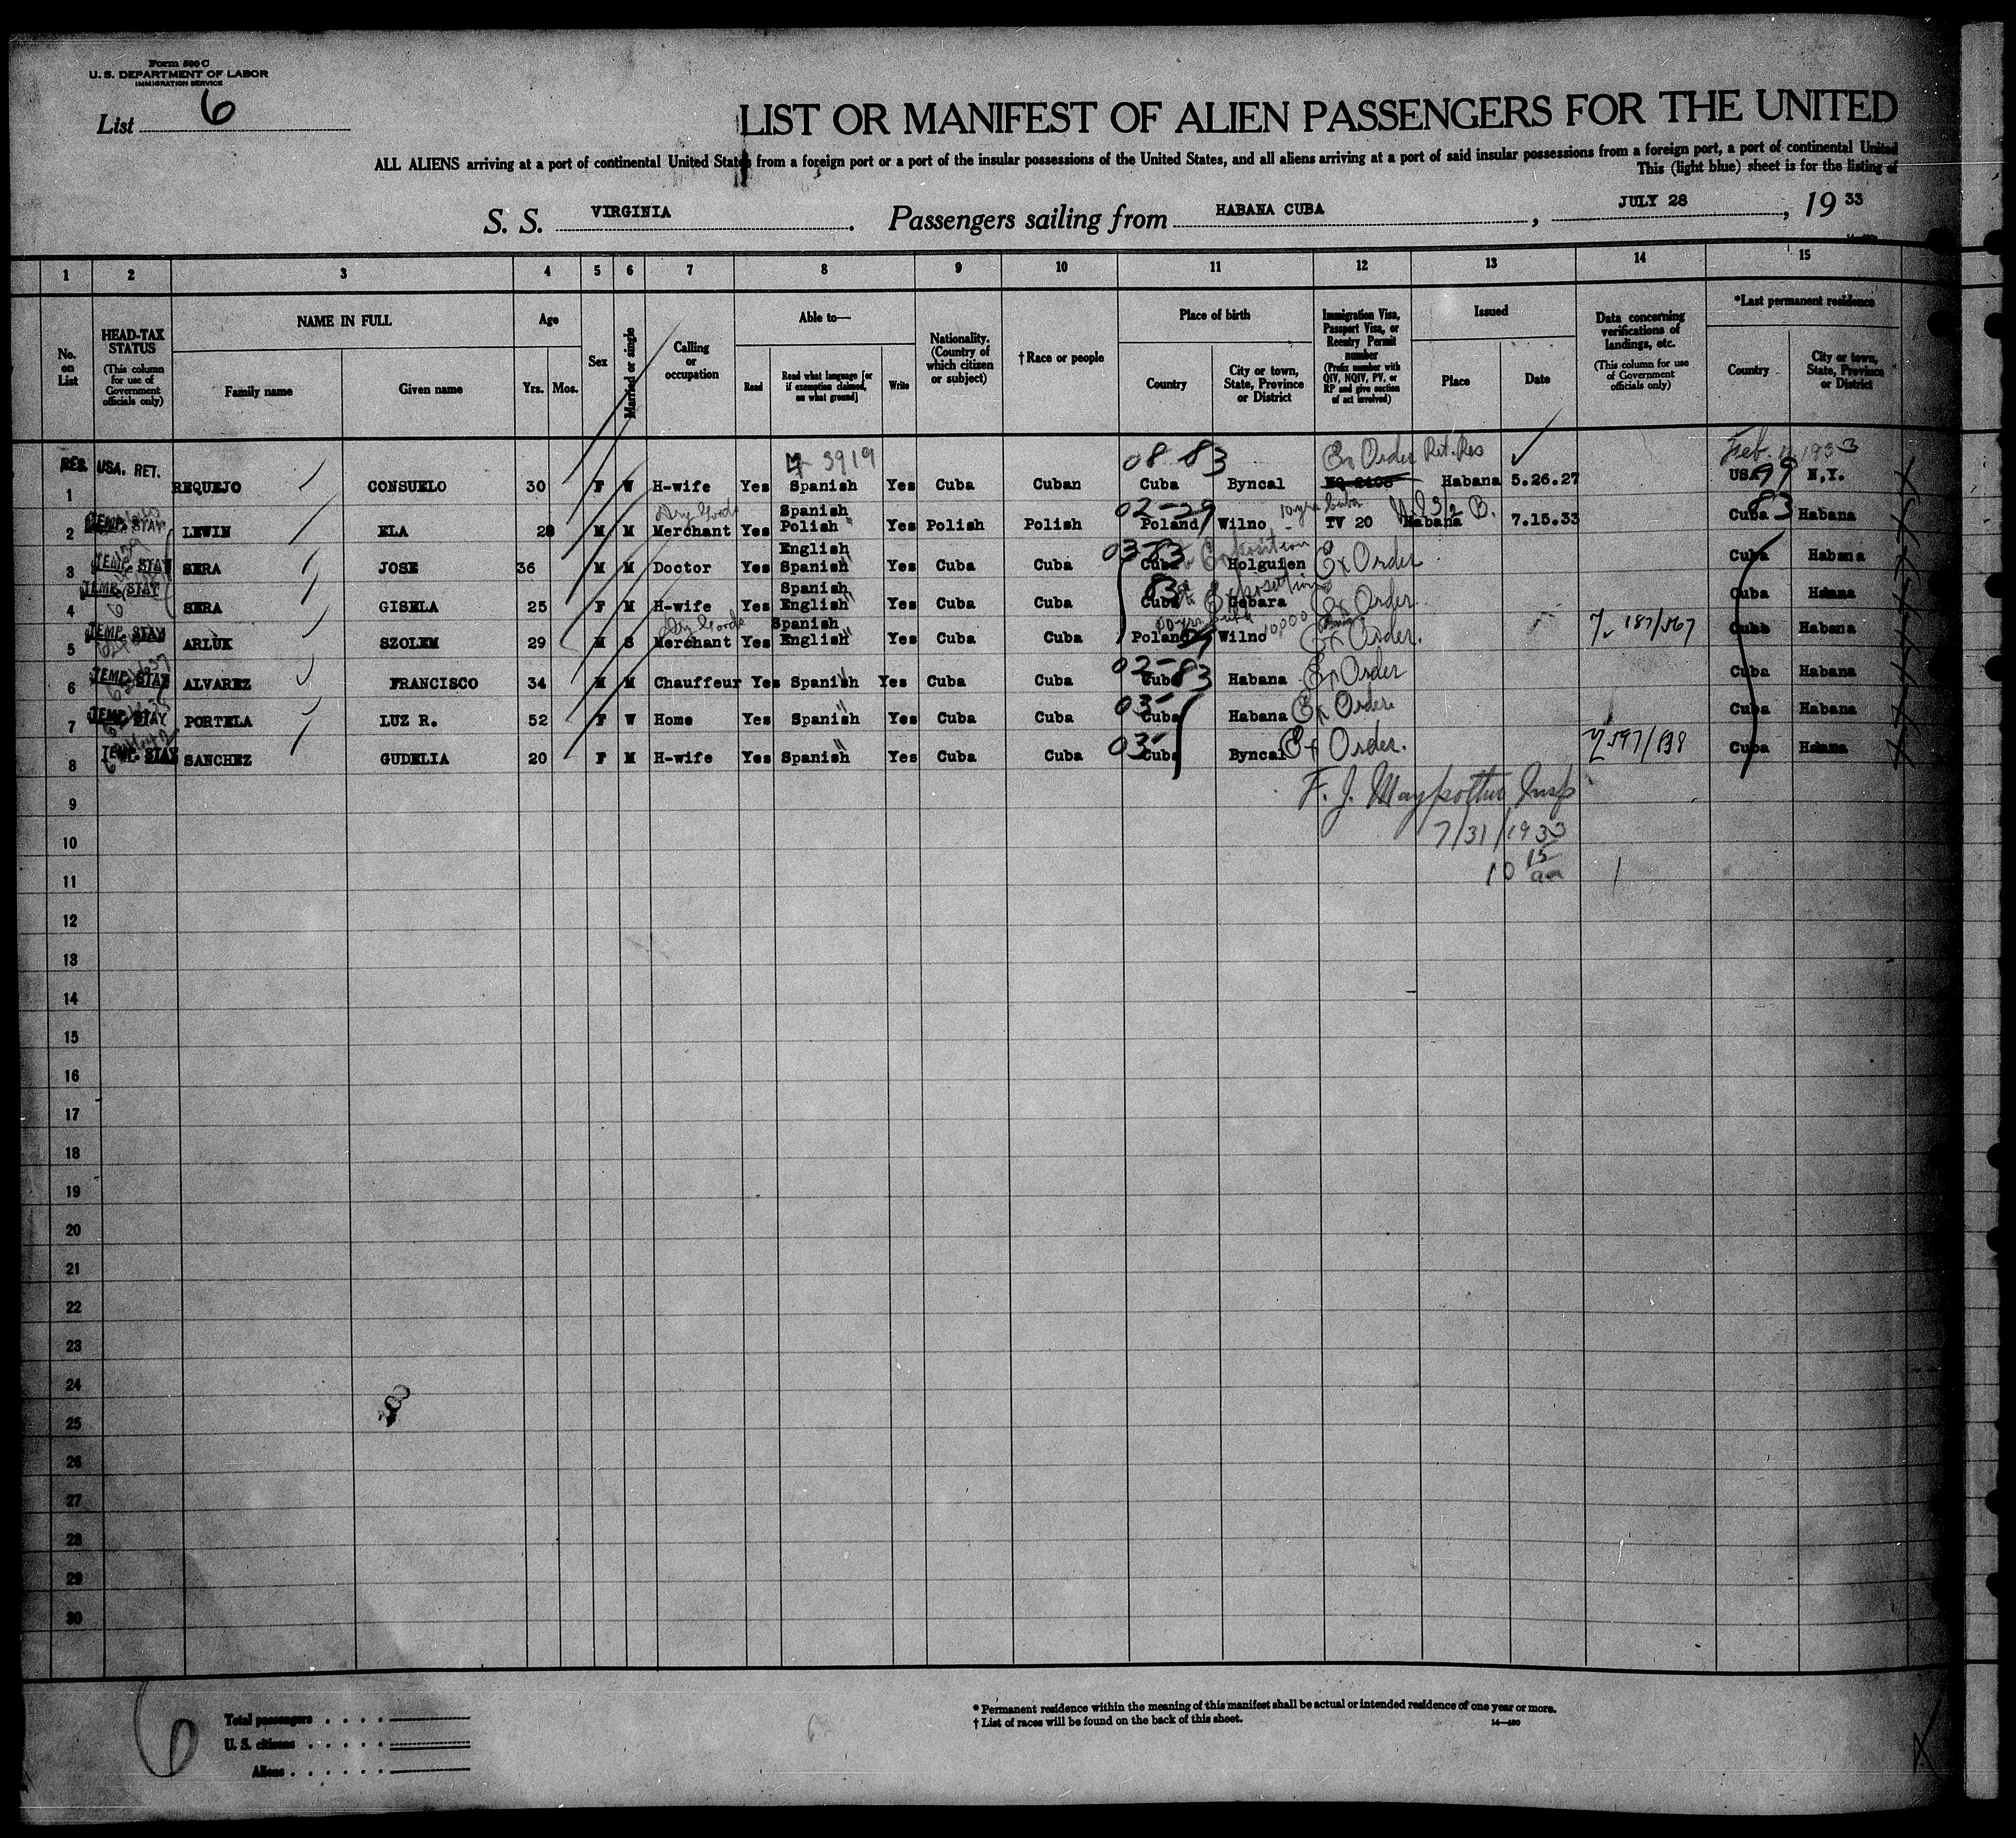 Form 500 C
U. S. DEPARTMENT OF LABOR
IMMIGRATION SERVICE
List 6
LIST OR MANIFEST OF ALIEN PASSENGERS FOR THE UNITED
ALL ALIENS arriving at a port of continental United States from a foreign port or a port of the insular possessions of the United States, and all aliens arriving at a port of said insular possessions from a foreign port, a port of continental United
This (light blue) sheet is for the listing of
S. S. VIRGINIA. Passengers sailing from HABANA CUBA, JULY 28, 19 33
1 2 3 4 5 6 7 8 9 10 11 12 13 14 15
No. on List
HEAD-TAX STATUS (This column for use of Government officials only)
NAME IN FULL Family name Given name
Age Yrs. Mos.
Sex
Married or single
Calling or occupation
Able to— Read Read what language [or if exemption claimed, on what ground] Write
Nationality. (Country of which citizen or subject)
†Race or people
Place of birth Country City or town, State, Province or District
Immigration Visa, Passport Visa, or Reentry Permit number (Prefix number with QIV, NQIV, PV, or RP and give section of act involved)
Issued Place Date
Data concerning verifications of landings, etc. (This column for use of Government officials only)
*Last permanent residence Country City or town, State, Province or District
3919 08 83 Ex Order Ret. Res Feb. 1933
1 RES. USA. RET. REQUEJO CONSUELO 30 F W H-wife Yes Spanish Yes Cuba Cuban Cuba Byncal Habana 5.26.27 USA 99 N.Y.
Dry Goods Spanish 02-29 10 yrs Cuba 3/2 B. 83
2 TEMP. STAY LEWIN ELA 28 M M Merchant Yes Polish " Yes Polish Polish Poland Wilno TV 20 Habana 7.15.33 Cuba Habana
English 03-83 Exposition
3 TEMP. STAY SERA JOSE 36 M M Doctor Yes Spanish " Yes Cuba Cuba Cuba Holguien Ex Order Cuba Habana
Spanish 83 Exposition
4 TEMP. STAY SERA GISELA 25 F M H-wife Yes English " Yes Cuba Cuba Cuba Gebara Ex Order Cuba Habana
Dry Goods Spanish 10,000
5 TEMP. STAY ARLUK SZOLEM 29 M S Merchant Yes English " Yes Cuba Cuba Poland Wilno Ex Order. 187/567 Cuba Habana
02-83
6 TEMP. STAY ALVAREZ FRANCISCO 34 M M Chauffeur Yes Spanish " Yes Cuba Cuba Cuba Habana Ex Order Cuba Habana
03-
7 TEMP. STAY PORTELA LUZ R. 52 F W Home Yes Spanish " Yes Cuba Cuba Cuba Habana Ex Order. Cuba Habana
03-
8 TEMP. STAY SANCHEZ GUDELIA 20 F M H-wife Yes Spanish " Yes Cuba Cuba Cuba Byncal Ex Order. Cuba Habana
9 F. J. Insp
10 7/31/1933
11 10 15 am
12
13
14
15
16
17
18
19
20
21
22
23
24
25
26
27
28
29
30
6
Total passengers . . . .
U. S. citizens . . . . .
Aliens . . . . . .
* Permanent residence within the meaning of this manifest shall be actual or intended residence of one year or more.
† List of races will be found on the back of this sheet.
14—430